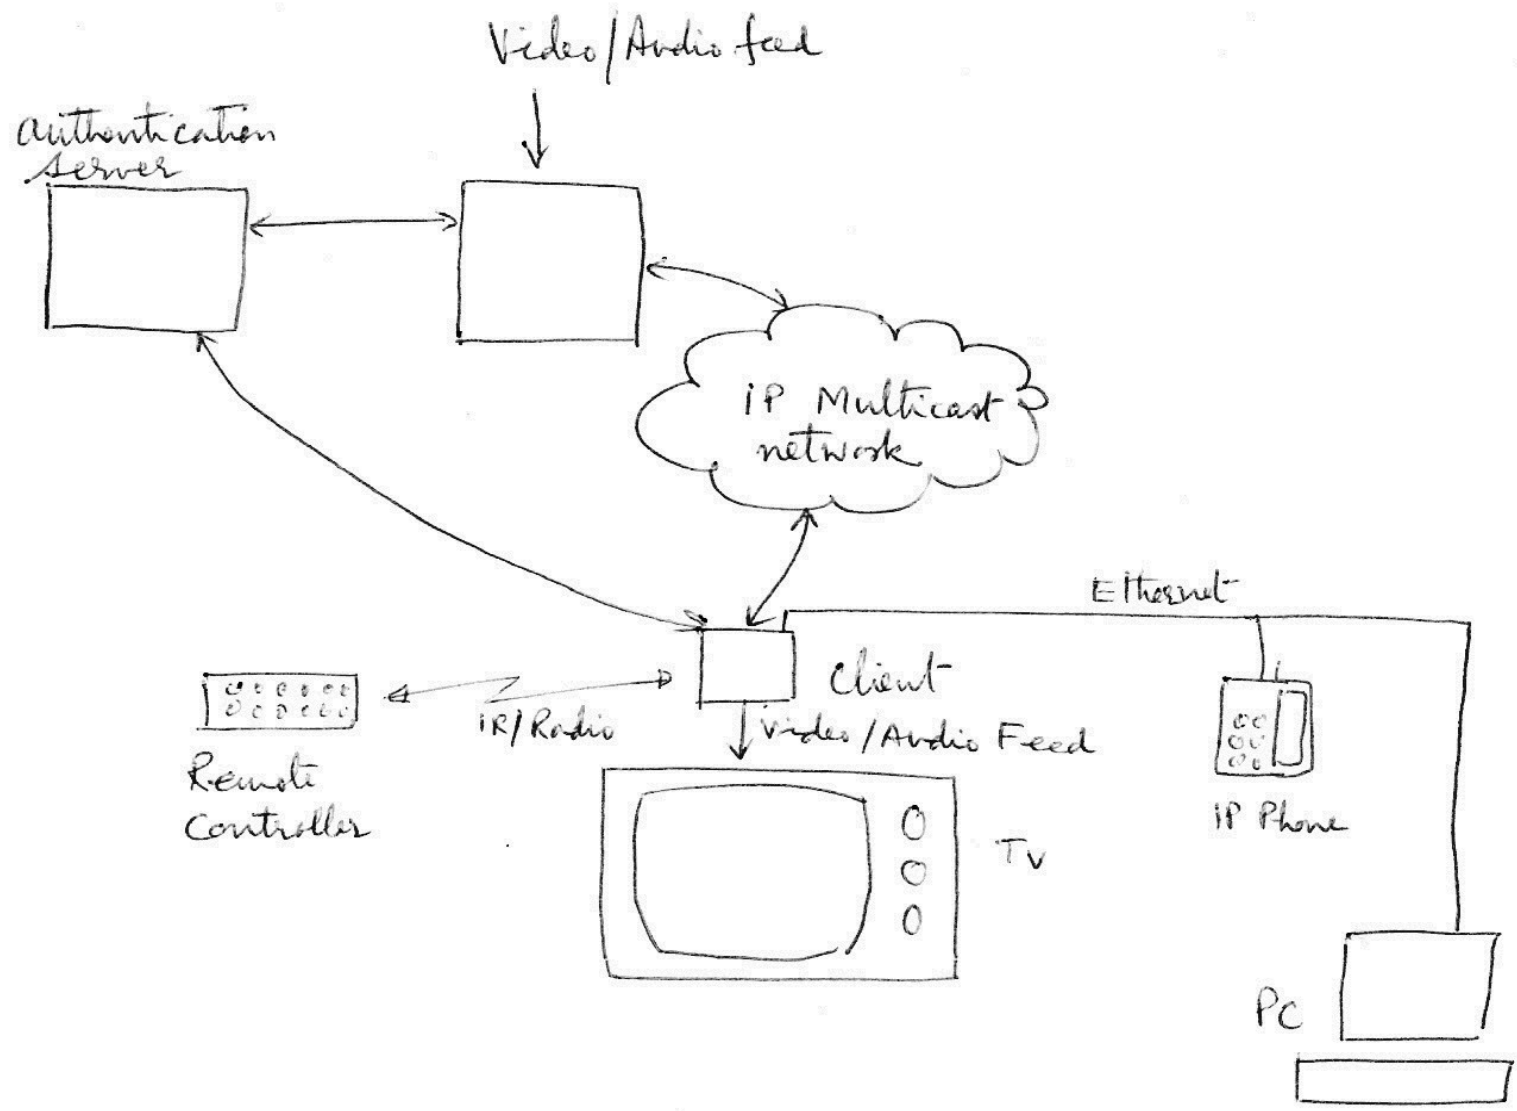 Video/Audio feed
authentication
server
iP Multicast
network
Ethernet
Client
iR/Radio
Video/Audio Feed
Remote
Controller
IP Phone
TV
PC